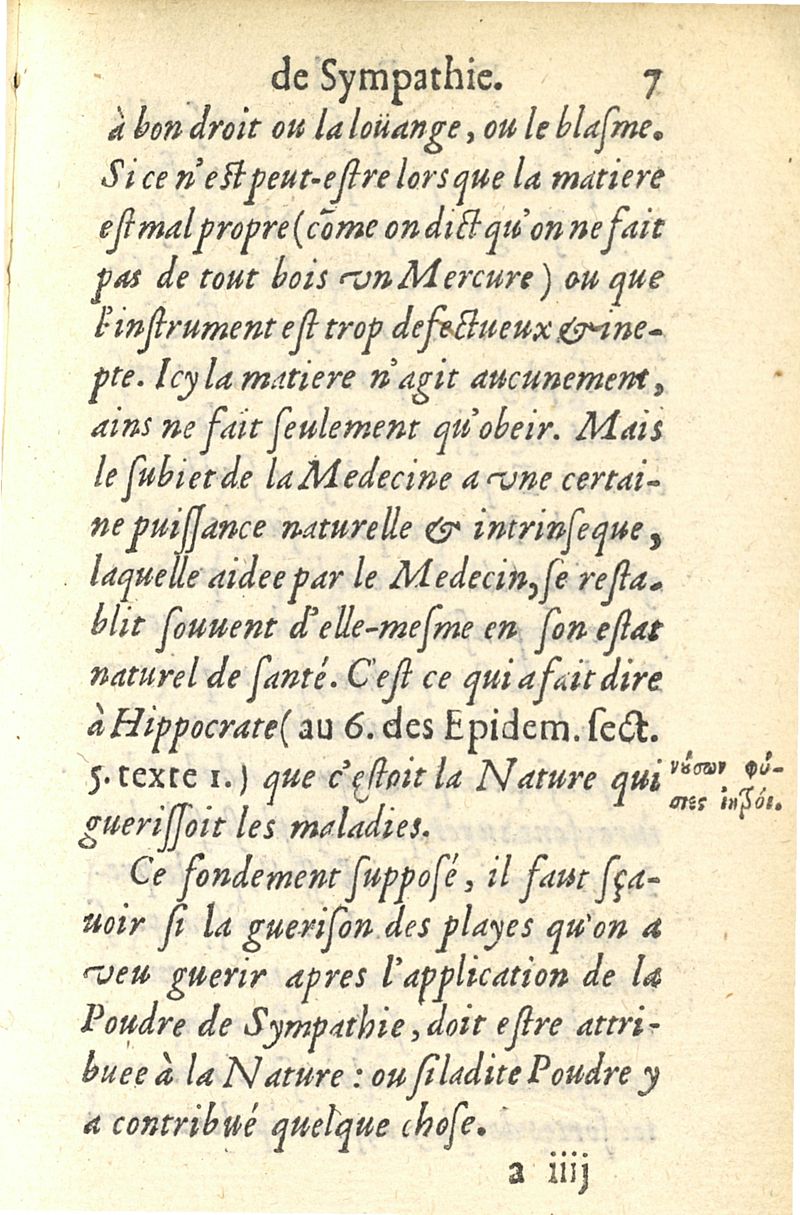 de Sympathie. 7
à bon droit ou la loüange, ou le blaſme.
Si ce n'eſt peut-eſtre lors que la matiere
eſt mal propre (cōme on dict qu'on ne fait
pas de tout bois vn Mercure) ou que
l'inſtrument eſt trop defectueux & ine-
pte. Icy la matiere n'agit aucunement,
ains ne fait ſeulement qu'obeir. Mais
le ſubiet de la Medecine a vne certai-
ne puiſſance naturelle & intrinſeque,
laquelle aidee par le Medecin, ſe reſta-
blit ſouuent d'elle-meſme en ſon eſtat
naturel de ſanté. C'eſt ce qui a fait dire
à Hippocrate (au 6. des Epidem. ſect.
5. texte 1.) que c'eſtoit la Nature qui
νούσων φύ-
σιες ἰητροί.
gueriſſoit les maladies.
Ce fondement ſuppoſé, il faut ſça-
uoir ſi la gueriſon des playes qu'on a
veu guerir apres l'application de la
Poudre de Sympathie, doit eſtre attri-
buee à la Nature : ou ſi ladite Poudre y
a contribué quelque choſe.
a iiij